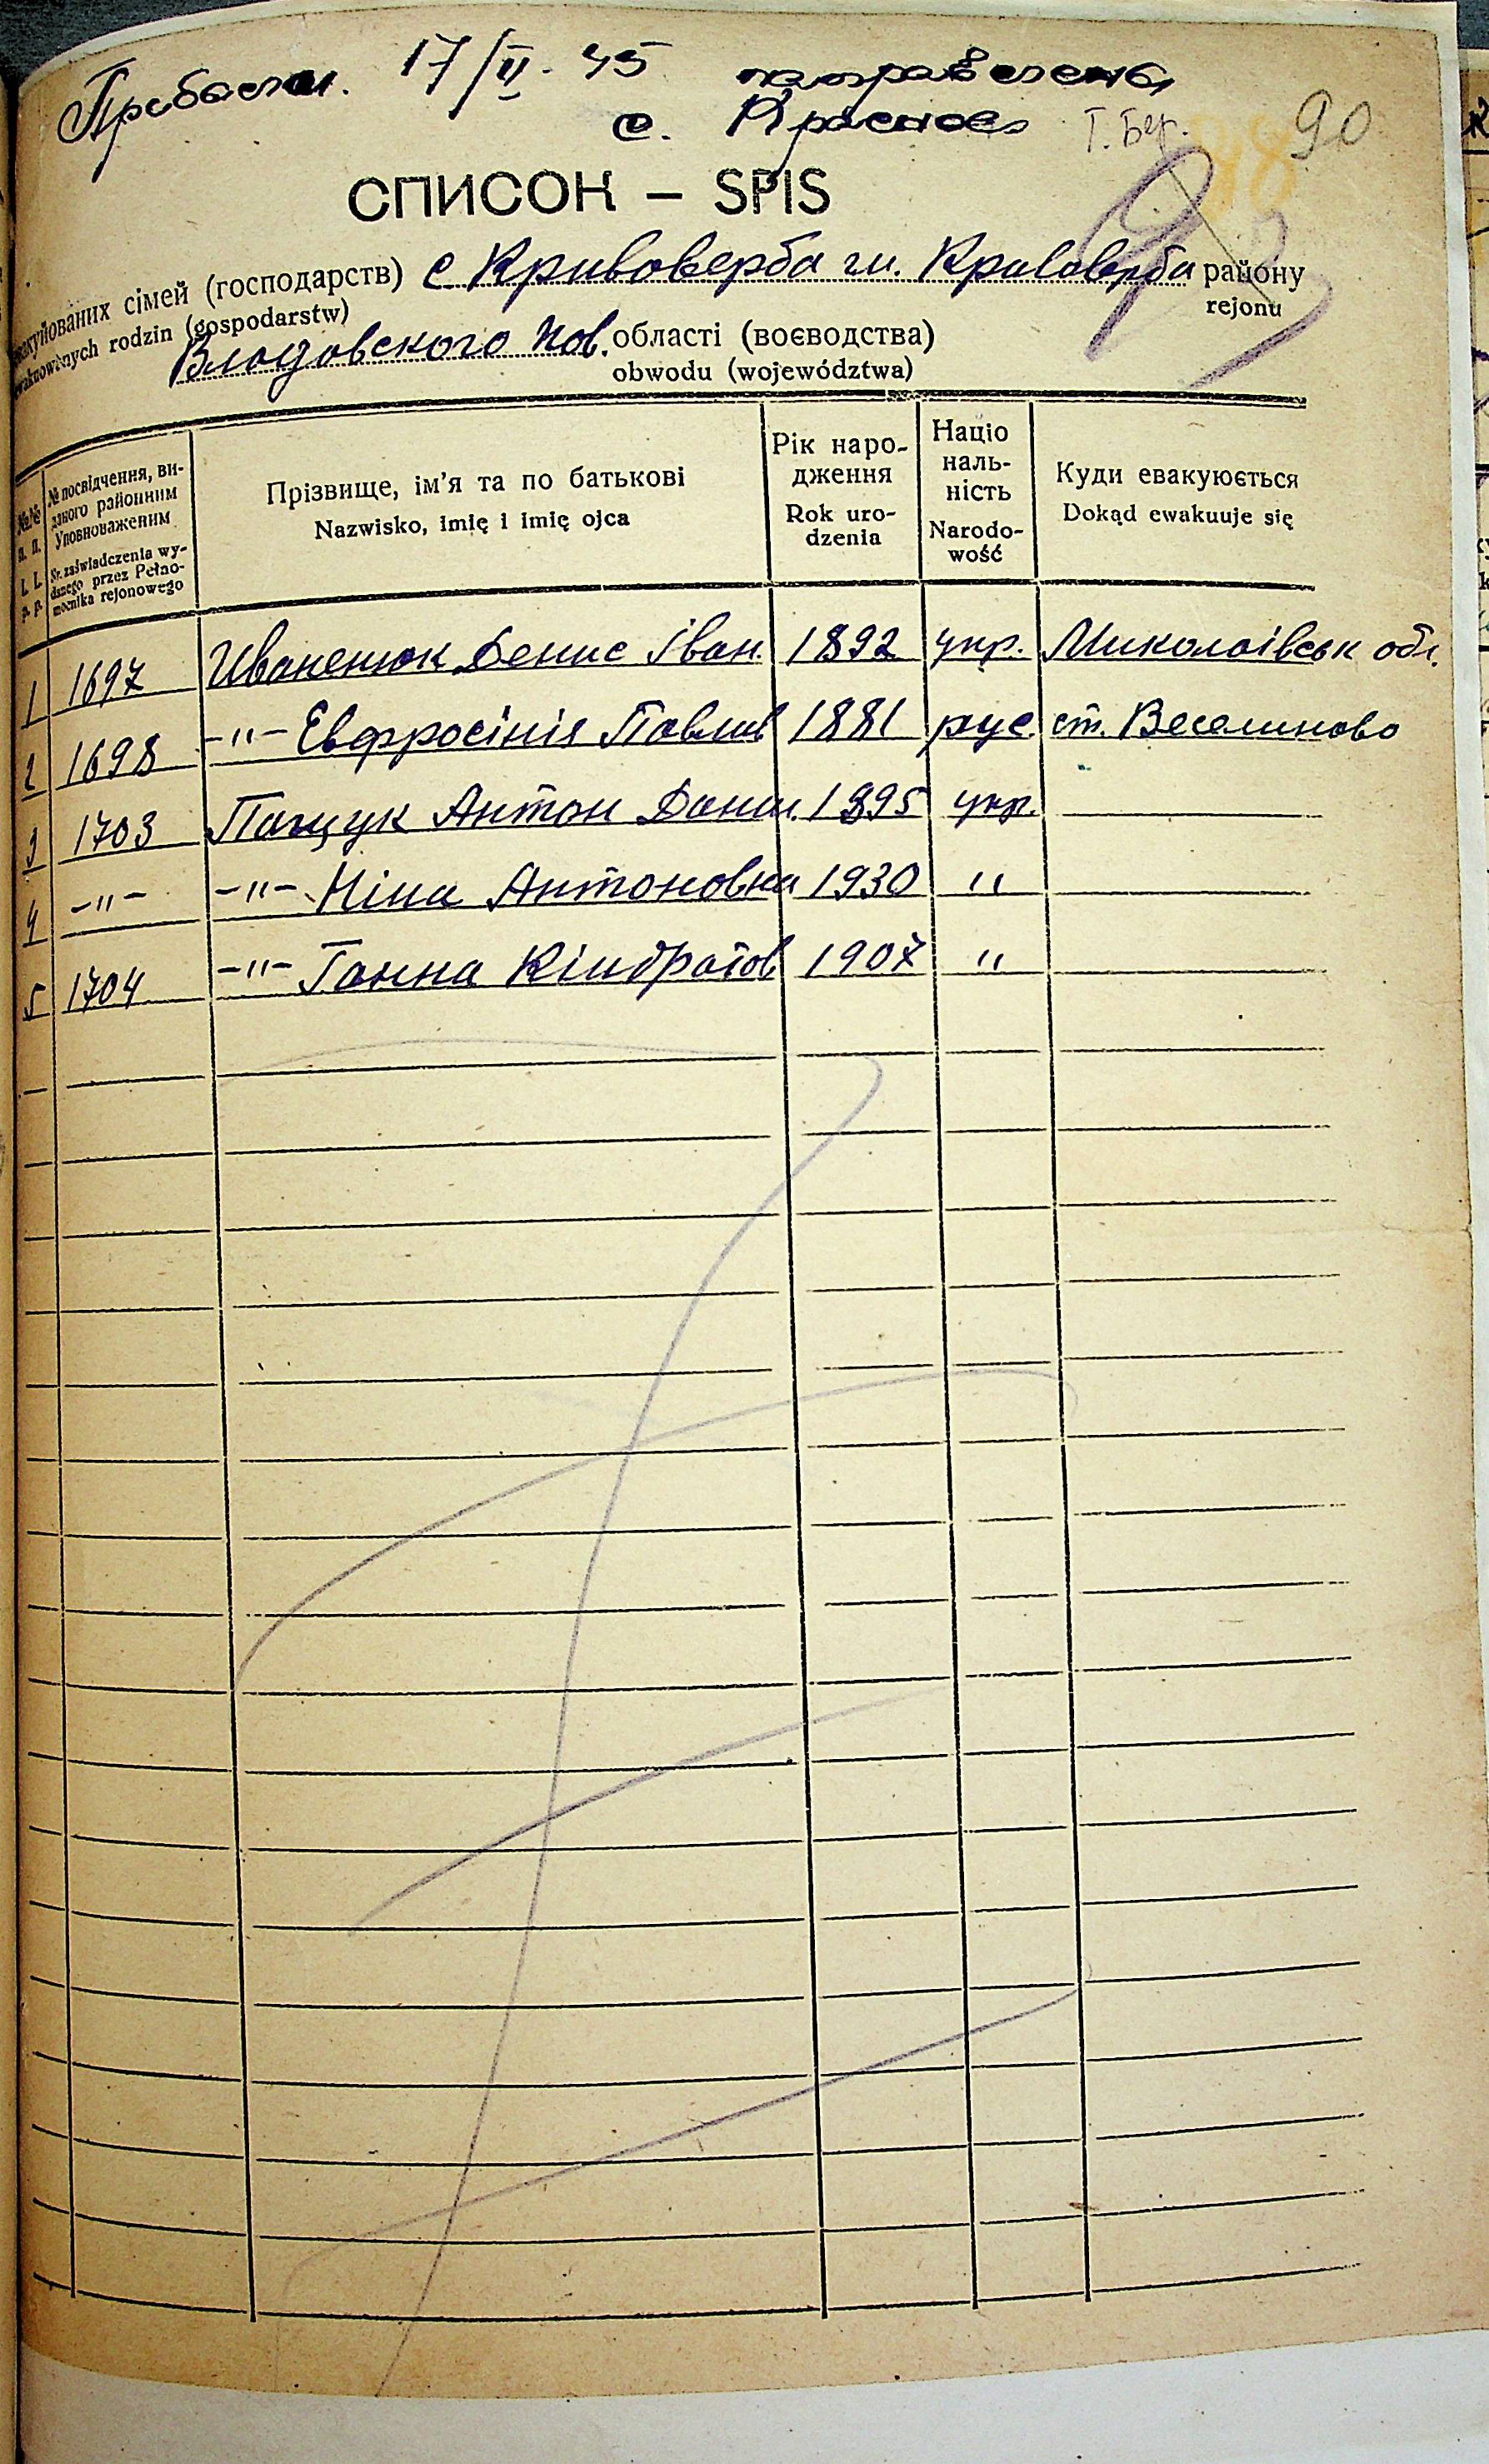 Прибыли. 17/II. 45 направлены
с. Красное Т. Бер. 90
СПИСОК – SPIS
евакуйованих сімей (господарств) с Кривоверба гм. Кривоверба району
ewakuowanych rodzin (gospodarstw) rejonu
Влодовского пов. області (воєводства)
obwodu (województwa)
№№ п. п. L. L. p. p.
№ посвідчення, ви-
даного районним
Уповноваженим
Nr. zaświadczenia wy-
danego przez Pełno-
mocnika rejonowego
Прізвище, ім’я та по батькові
Nazwisko, imię i imię ojca
Рік наро-
дження
Rok uro-
dzenia
Націо
наль-
ність
Narodo-
wość
Куди евакуюється
Dokąd ewakuuje się
1 1697 Иваненюк Денис Іван. 1892 укр. Миколаівськ обл.
2 1698 -"- Евфросінія Павлів 1881 рус. ст. Веселиново
3 1703 Пащук Антон Данил. 1895 укр.
4 -"- -"- Ніна Антоновна 1930 "
5 1704 -"- Ганна Кіндратов 1907 "